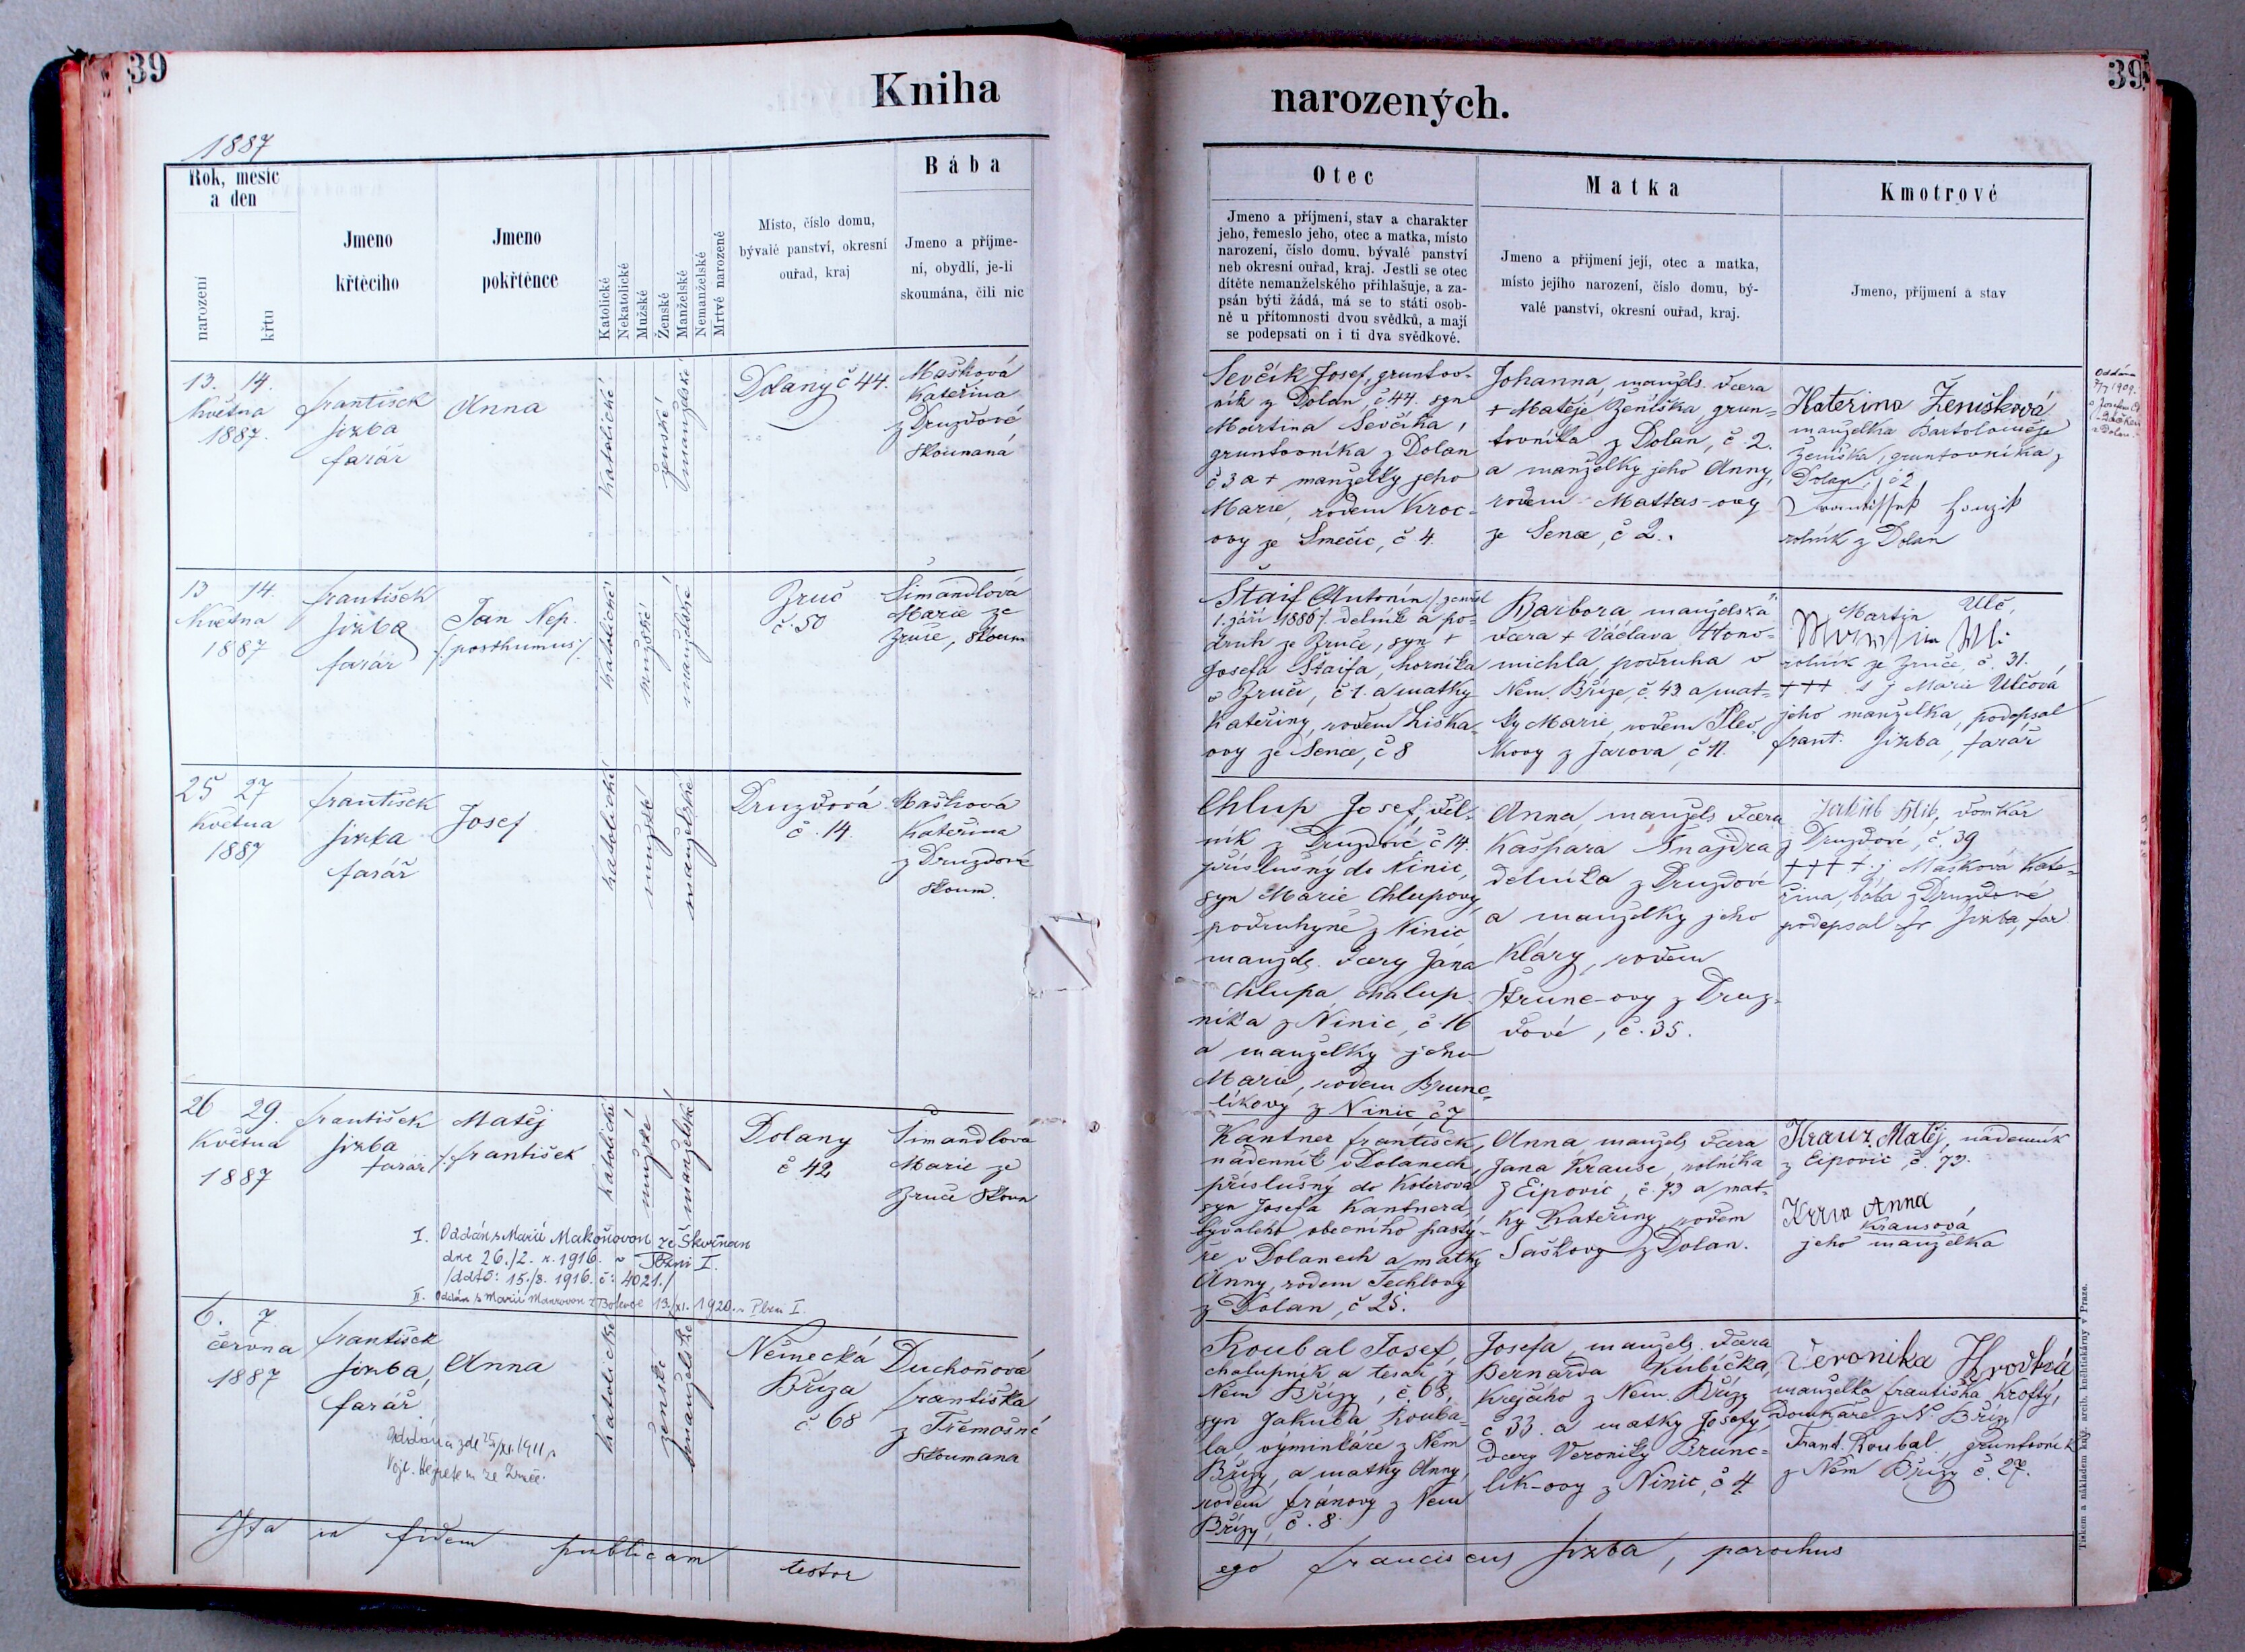 39
Kniha
1887
Rok, mesíc
a den
narození
křtu
Jmeno
křtěcího
Jmeno
pokřtěnce
Katolické
Nekatolické
Mužské
Ženské
Manželské
Nemanželské
Mrtvě narozené
Místo, číslo domu,
bývalé panství, okresní
ouřad, kraj
Bába
Jmeno a příjme-
ní, obydlí, je-li
skoumána, čili nic
13. 14.
Května
1887.
František
Jirba
farář
Anna
katolické
ženské
manželské
Dolany č 44.
Mašková
Kateřina
z Druzdové
skoumaná
13 14.
Května
1887
František
Jirba
farář
Jan Nep.
/: posthumus :/
katolické
mužské
manželské
Zruč
č. 50
Šimandlová
Marie ze
Zruče, skoum
25 27
Května
1887
František
Jirba
farář
Josef
katolické
mužské
manželské
Druzdová
č. 14.
Mašková
Kateřina
z Druzdové
skoum.
26 29.
Května
1887
František
Jirba
farář
Matěj
/: František
katolické
mužské
manželské
Dolany
č 42
Šimandlová
Marie ze
Zruče skoum
I. Oddán s Marií Makoňovou ze Škvrňan
dne 26./2. r. 1916. v Plzni I.
/ddto: 15./8. 1916. č: 4021./
II. Oddán s Marií 13./XI. 1920. v Plzni I.
6. 7.
června
1887
František
Jirba,
farář
Anna
katolické
ženské
manželské
Německá
Bříza
č. 68
Duchoňová
Františka
z Třemošné
skoumana
Oddána zde 25/XI. 1911 s
Vojt. ze Zruče.
Ita in fidem publicam testor
39
narozených.
Otec
Jmeno a příjmení, stav a charakter
jeho, řemeslo jeho, otec a matka, místo
narození, číslo domu, bývalé panství
neb okresní ouřad, kraj. Jestli se otec
dítěte nemanželského přihlašuje, a za-
psán býti žádá, má se to státi osob-
ně u přítomnosti dvou svědků, a mají
se podepsati on i ti dva svědkové.
Matka
Jmeno a přijmení její, otec a matka,
místo jejího narození, číslo domu, bý-
valé panství, okresní ouřad, kraj.
Kmotrové
Jmeno, příjmení a stav
Ševčík Josef, gruntov-
ník z Dolan č. 44. syn
Martina Ševčíka,
gruntovníka z Dolan
č 3 a + manželky jeho
Marie, rodem Kroc-
ovy ze Smečic, č 4.
Johanna, manžels. dcera
+ Matěje Ženíška, grun-
tovníka z Dolan, č 2.
a manželky jeho Anny,
rodem Mattas-ovy
ze Sence, č 2.
Kateřina Ženíšková
manželka Bartoloměje
Ženíška, gruntovníka z
Dolan, č 2
František Houzik
rolník z Dolan
Oddána
7/7 1909.
s Josefem
z Dolan.
Štaif Antonín / zemřel
1. září 1886 /. dělník a po-
druh ze Zruče, syn +
Josefa Štaifa, horníka
v Zruči, č 1. a matky
Kateřiny, rodem Liška-
ovy ze Sence, č 8
Barbora, manželská
dcera + Václava Hono-
michla, podruha v
Něm. Bříze, č. 43 a mat-
ky Marie, rodem Plev-
kovy z Jarova, č 11.
Martin Ulč,
rolník ze Zruče, č. 31.
+++ t j Marie Ulčová
jeho manželka, podepsal
Frant. Jirba, farář
Chlup Josef, děl-
ník z Druzdové č 14.
příslušný do Ninic,
syn Marie Chlupovy,
podruhyně z Ninic
manžels. dcery Jana
Chlupa, chalup-
níka z Ninic, č 16
a manželky jeho
Marie, rodem Brunc-
líkovy z Ninic č 7
Anna, manžels dcera
Kašpara Šnajdra
dělníka z Druzdové
a manželky jeho
Kláry, rodem
Štrunc-ovy z Druz-
dové, č. 35.
Jakub domkář
z Druzdové, č. 39
+++ t. j. Mašková Kate-
řina, bába z Druzdové
podepsal Fr Jirba, far
Kantner František,
nádenník v Dolanech,
příslušný do Koterova
syn Josefa Kantnera,
bývalého obecního pastý-
ře v Dolanech a matky
Anny, rodem Techlovy
z Dolan, č 25.
Anna manžels dcera
Jana Krause, rolníka
z Ejpovic, č. 73 a mat-
ky Kateřiny, rodem
Saškovy z Dolan.
Krauz Matěj, nádenník
z Ejpovic, č. 73.
Anna
Krausová
jeho manželka
Roubal Josef,
chalupník a tesař z
Něm Břízy, č. 68,
syn Jakuba Rouba-
la výminkáře z Něm
Břízy, a matky Anny,
rodem Fránovy z Něm
Břízy, č. 8.
Josefa manžels. dcera
Bernarda Kubíčka,
krejčího z Něm. Břízy
č 33. a matky Josefy,
dcery Veroniky Brunc-
lík-ovy z Ninic, č 4.
Veronika
manželka Františka Krofty,
domkáře z N. Břízy
Frant. Roubal, gruntovník
z Něm Břízy č. 27.
ego Franciscus Jirba, parochus
Tiskem a nákladem kníž. arcib. knihtiskárny v Praze.